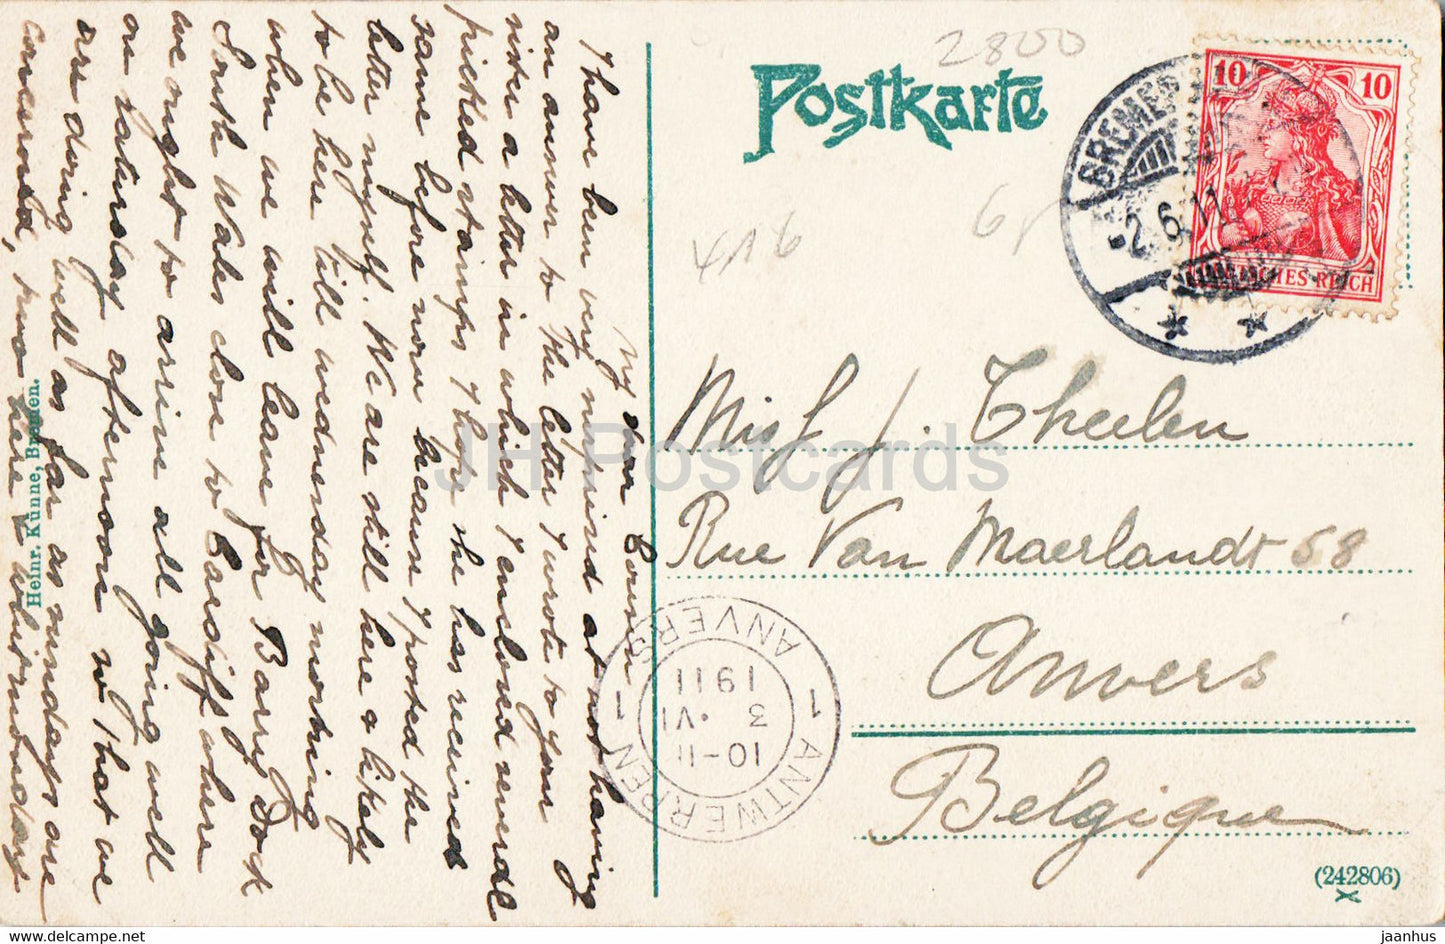 2800
Postkarte
BREMER
-2.6.11
10 10
DEUTSCHES REICH
X16
6
Miss J. Theelen
Rue Van Maerlandt 58
Anvers
Belgique
1 ANTWERPEN 1 ANVERS
10-11
3 VI
1911
(242806)
Heinr. Künne, Bremen.
My dear Cousin
I have been very surprised at not having
an answer to the letter I wrote to your
sister a letter in which I enclosed several
picked stamps I hope she has received
same before now because I posted the
letter myself. We are still here & likely
to be here till wednesday morning
when we will leave for Barry Dock
South Wales close to Cardiff where
we ought to arrive all going well
on saturday afternoon so that we
are doing well as far as sundays are
concerned, two here & whitmonday
JH Postcards
www.hippostcard.com/store/jh-postcards
jaanhus